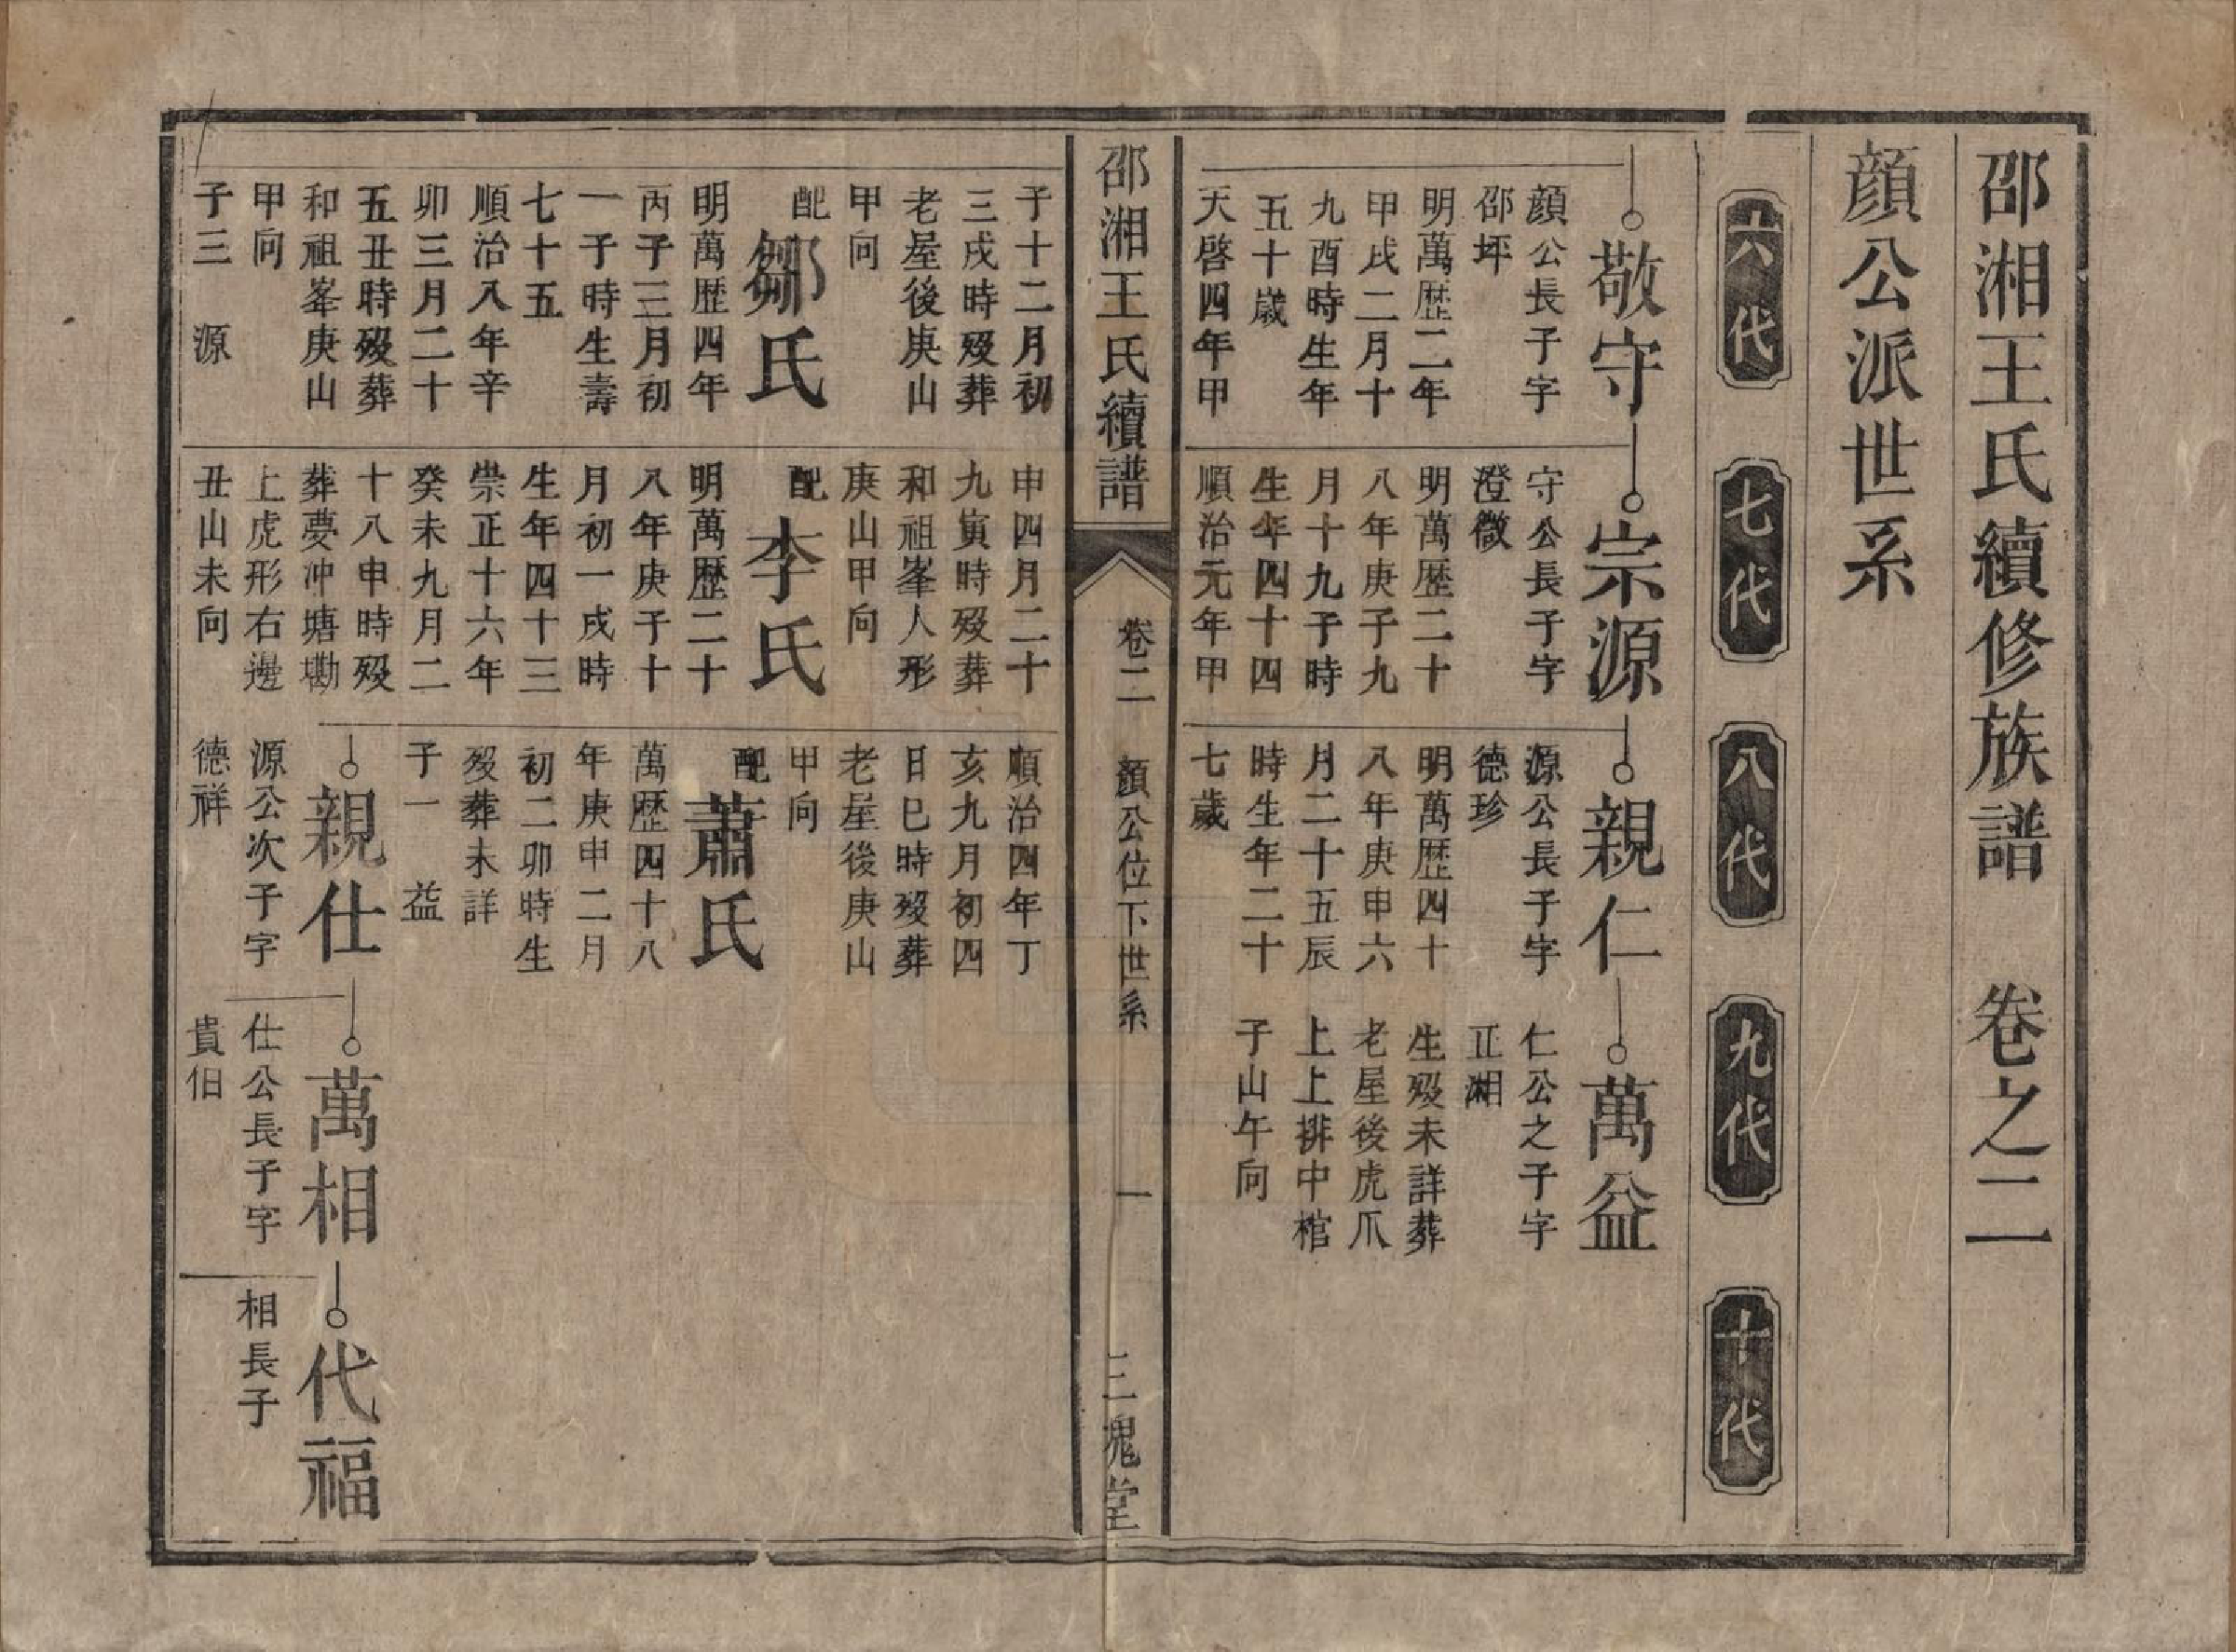 邵湘王氏續修族譜　卷之二
顔公派世系
六代
七代
八代
九代
十代
敬守
顔公長子字
邵坪
明萬歴二年
甲戌二月十
九酉時生年
五十歲
天啓四年甲
子十二月初
三戌時殁葬
老屋後庚山
甲向
配
鄒氏
明萬歴四年
丙子三月初
一子時生壽
七十五
順治八年辛
卯三月二十
五丑時殁葬
和祖峯庚山
甲向
子三　源
宗源
守公長子字
澄微
明萬歴二十
八年庚子九
月十九子時
生年四十四
順治元年甲
申四月二十
九寅時殁葬
和祖峯人形
庚山甲向
配
李氏
明萬歴二十
八年庚子十
月初一戌時
生年四十三
崇正十六年
癸未九月二
十八申時殁
葬夢冲塘墈
上虎形右邊
丑山未向
親仁
源公長子字
德珍
明萬歴四十
八年庚申六
月二十五辰
時生年二十
七歲
順治四年丁
亥九月初四
日巳時殁葬
老屋後庚山
甲向
配
蕭氏
萬歴四十八
年庚申二月
初二卯時生
殁葬未詳
子一　益
親仕
源公次子字
德祥
萬益
仁公之子字
正湘
生殁未詳葬
老屋後虎爪
上上排中棺
子山午向
萬相
仕公長子字
貴伯
代福
相長子
邵湘王氏續譜
卷二
顔公位下世系
一
三槐堂